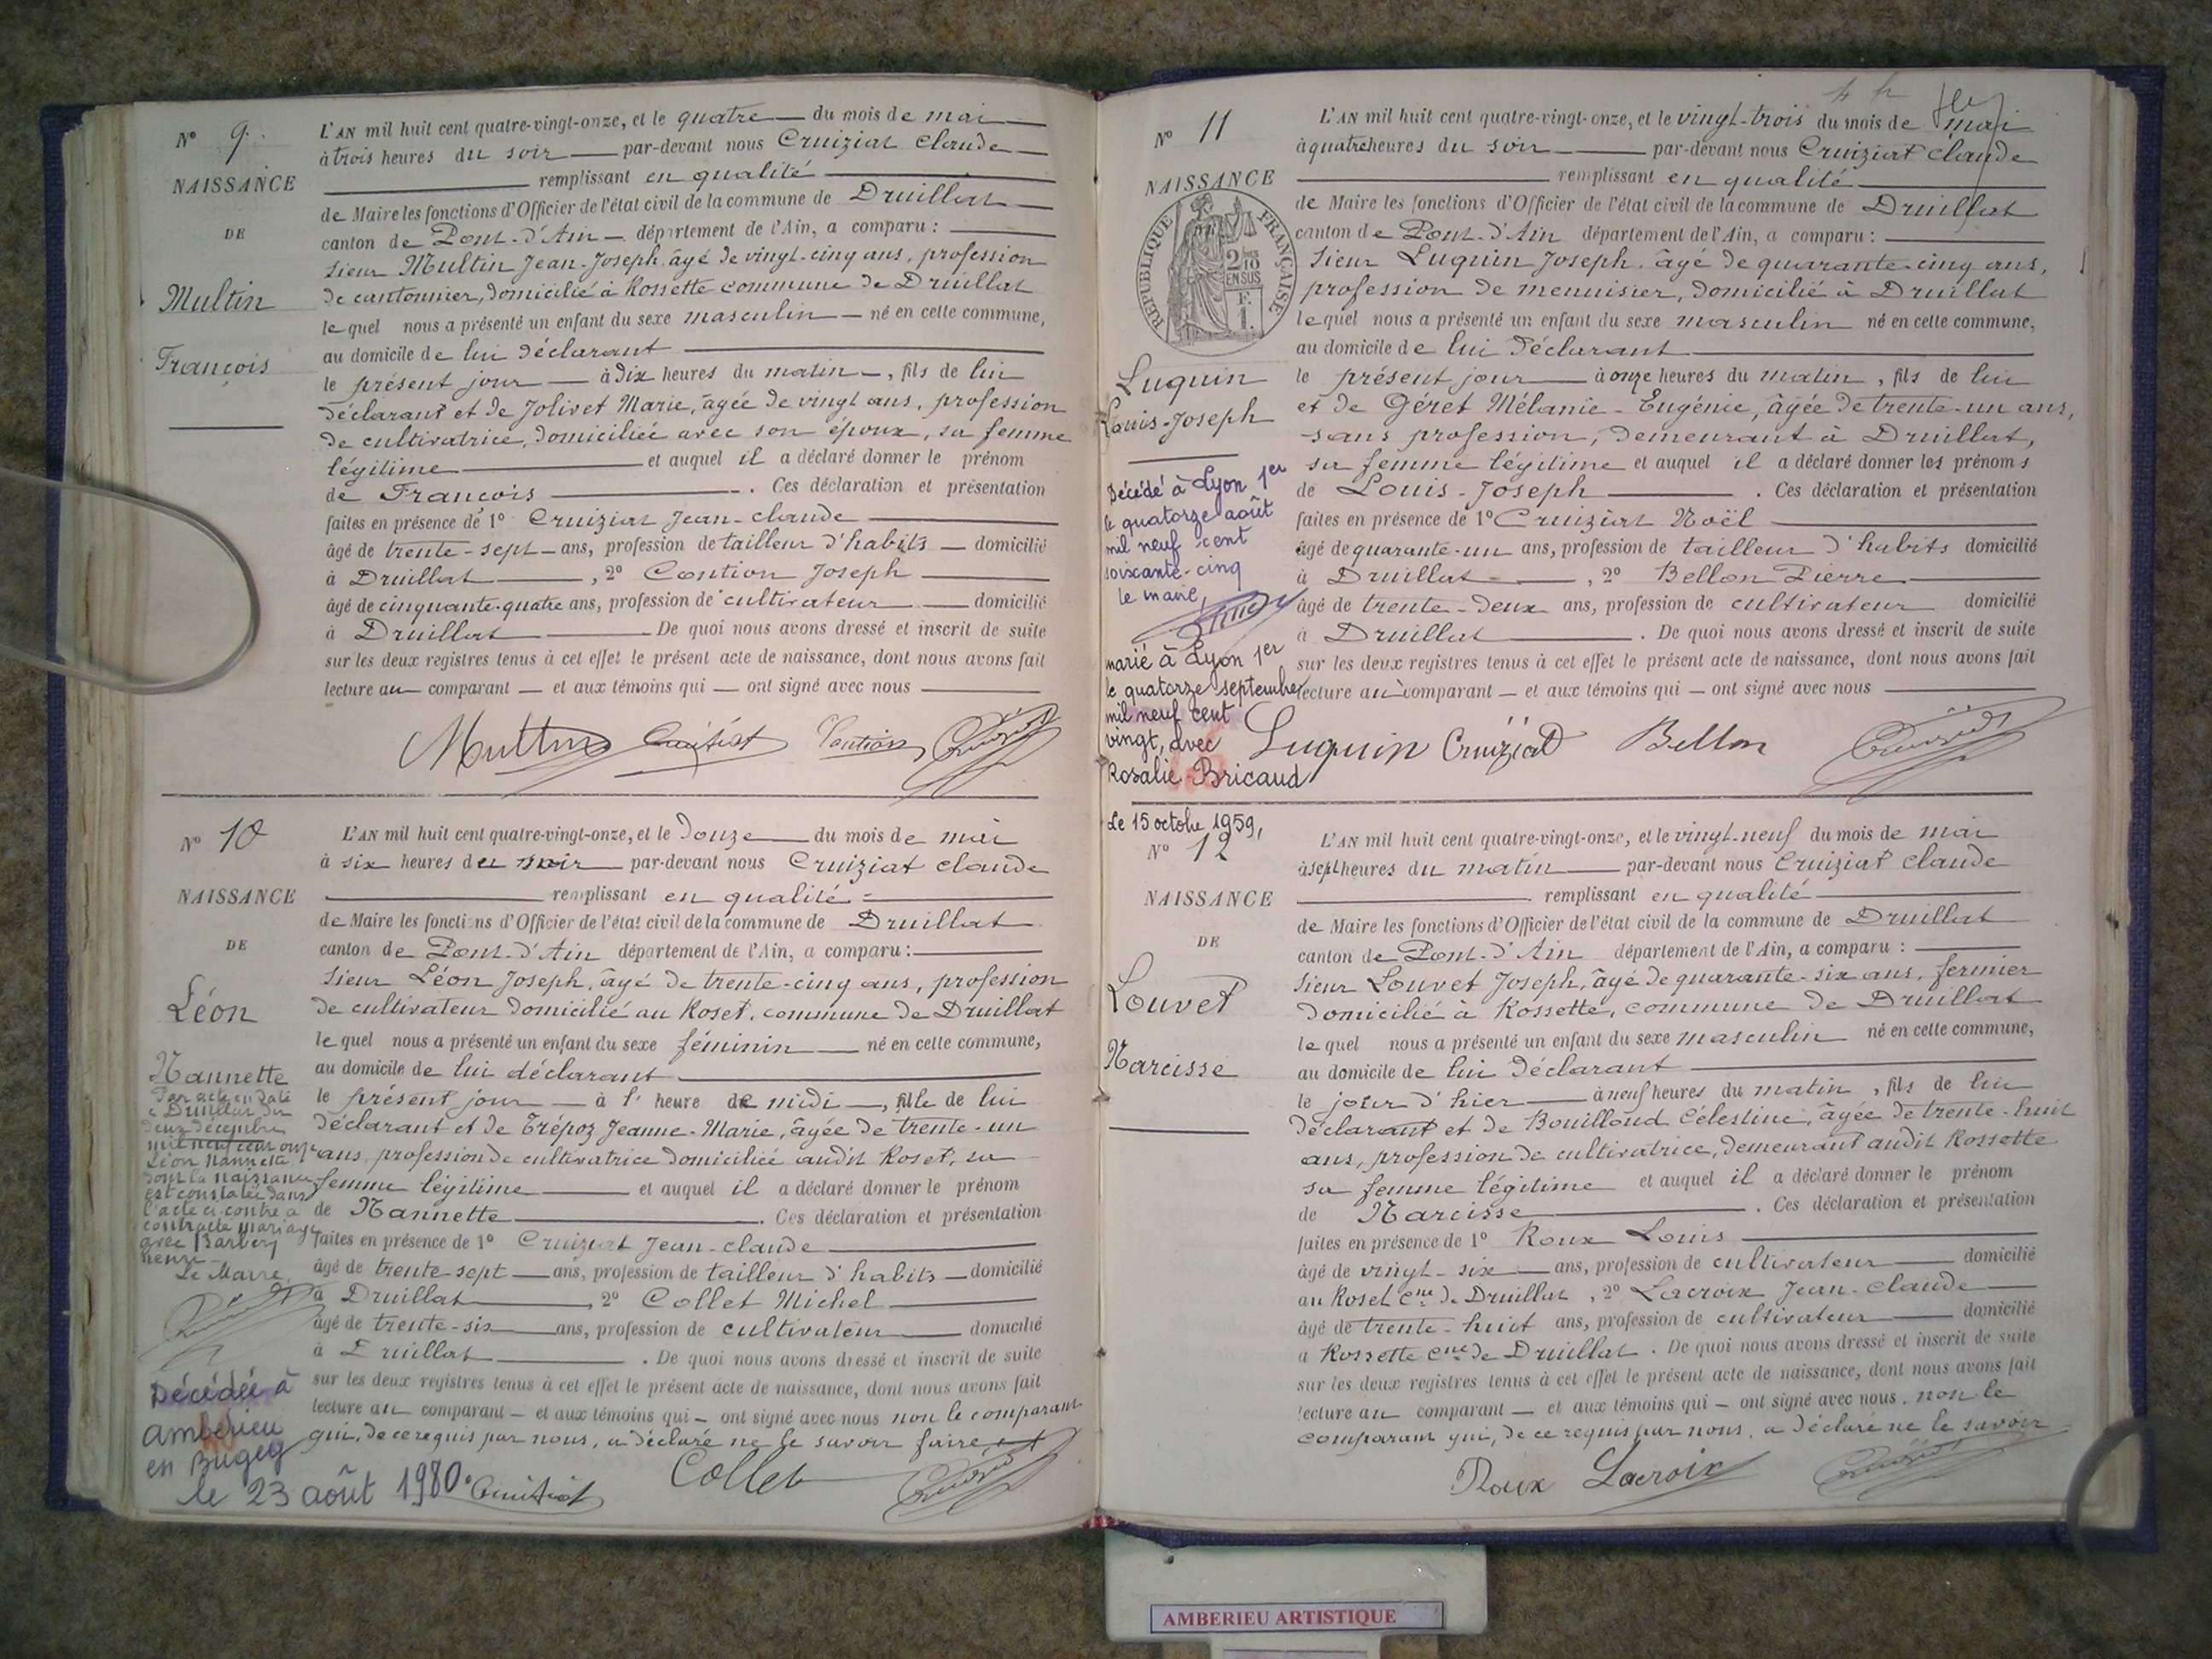 N° 9.
NAISSANCE
DE
Multin
François
L'AN mil huit cent quatre-vingt-onze, et le quatre du mois de mai
à trois heures du soir par-devant nous Cruiziat Claude
remplissant en qualité
de Maire les fonctions d'Officier de l'état civil de la commune de Druillat
canton de Pont-d'Ain département de l'Ain, a comparu :
sieur Multin Jean-Joseph, âgé de vingt-cinq ans, profession
de cantonnier, domicilié à Rossette commune de Druillat
lequel nous a présenté un enfant du sexe masculin né en cette commune,
au domicile de lui déclarant
le présent jour à dix heures du matin, fils de lui
déclarant et de Jolivet Marie, âgée de vingt ans, profession
de cultivatrice, domiciliée avec son époux, sa femme
légitime et auquel il a déclaré donner le prénom
de François . Ces déclaration et présentation
faites en présence de 1° Cruiziat Jean-Claude
âgé de trente-sept ans, profession de tailleur d'habits domicilié
à Druillat , 2° Contion Joseph
âgé de cinquante-quatre ans, profession de cultivateur domicilié
à Druillat De quoi nous avons dressé et inscrit de suite
sur les deux registres tenus à cet effet le présent acte de naissance, dont nous avons fait
lecture au comparant et aux témoins qui ont signé avec nous
Multin Cruiziat Contion Cruiziat
N° 10
NAISSANCE
DE
Léon
Nannette
Par acte en date
à Druillat du
deux décembre
mil neuf cent onze
Léon Nannette
dont la naissance
est constatée dans
l'acte ci-contre a
contracté mariage
avec Barbery
Le Maire,
Décédée à
Ambérieu
en Bugey
le 23 août 1980.
L'AN mil huit cent quatre-vingt-onze, et le douze du mois de mai
à six heures du soir par-devant nous Cruiziat Claude
remplissant en qualité
de Maire les fonctions d'Officier de l'état civil de la commune de Druillat
canton de Pont-d'Ain département de l'Ain, a comparu :
sieur Léon Joseph, âgé de trente-cinq ans, profession
de cultivateur domicilié au Roset, commune de Druillat
lequel nous a présenté un enfant du sexe féminin né en cette commune,
au domicile de lui déclarant
le présent jour à l' heure de midi , fille de lui
déclarant et de Trépoz Jeanne-Marie, âgée de trente-un
ans, profession de cultivatrice domiciliée audit Roset, sa
femme légitime et auquel il a déclaré donner le prénom
de Nannette . Ces déclaration et présentation
faites en présence de 1° Cruiziat Jean-Claude
âgé de trente-sept ans, profession de tailleur d'habits domicilié
à Druillat , 2° Collet Michel
âgé de trente-six ans, profession de cultivateur domicilié
à Druillat . De quoi nous avons dressé et inscrit de suite
sur les deux registres tenus à cet effet le présent acte de naissance, dont nous avons fait
lecture au comparant et aux témoins qui ont signé avec nous non le comparant
qui, de ce requis par nous, a déclaré ne le savoir faire
Cruiziat Collet Cruiziat
N° 11
NAISSANCE
RÉPUBLIQUE FRANÇAISE
2/10 EN SUS
F. 1.
Luquin
Louis-Joseph
Décédé à Lyon 1er
le quatorze août
mil neuf cent
soixante-cinq
le maire,
marié à Lyon 1er
le quatorze septembre
mil neuf cent
vingt, avec
Rosalie Bricaud
Le 15 octobre 1959,
L'AN mil huit cent quatre-vingt-onze, et le vingt-trois du mois de mai
à quatre heures du soir par-devant nous Cruiziat Claude
remplissant en qualité
de Maire les fonctions d'Officier de l'état civil de la commune de Druillat
canton de Pont-d'Ain département de l'Ain, a comparu :
sieur Luquin Joseph, âgé de quarante-cinq ans,
profession de menuisier, domicilié à Druillat
lequel nous a présenté un enfant du sexe masculin né en cette commune,
au domicile de lui déclarant
le présent jour à onze heures du matin, fils de lui
et de Géret Mélanie-Eugénie, âgée de trente-un ans,
sans profession, demeurant à Druillat,
sa femme légitime et auquel il a déclaré donner les prénoms
de Louis-Joseph . Ces déclaration et présentation
faites en présence de 1° Cruiziat Noël
âgé de quarante-un ans, profession de tailleur d'habits domicilié
à Druillat , 2° Bellon Pierre
âgé de trente-deux ans, profession de cultivateur domicilié
à Druillat . De quoi nous avons dressé et inscrit de suite
sur les deux registres tenus à cet effet le présent acte de naissance, dont nous avons fait
lecture au comparant et aux témoins qui ont signé avec nous
Luquin Cruiziat Bellon Cruiziat
N° 12
NAISSANCE
DE
Louvet
Narcisse
L'AN mil huit cent quatre-vingt-onze, et le vingt-neuf du mois de mai
à sept heures du matin par-devant nous Cruiziat Claude
remplissant en qualité
de Maire les fonctions d'Officier de l'état civil de la commune de Druillat
canton de Pont-d'Ain département de l'Ain, a comparu :
sieur Louvet Joseph, âgé de quarante-six ans, fermier
domicilié à Rossette, commune de Druillat
lequel nous a présenté un enfant du sexe masculin né en cette commune,
au domicile de lui déclarant
le jour d'hier à neuf heures du matin, fils de lui
déclarant et de Bouilloud Célestine, âgée de trente-huit
ans, profession de cultivatrice, demeurant audit Rossette
sa femme légitime et auquel il a déclaré donner le prénom
de Narcisse . Ces déclaration et présentation
faites en présence de 1° Roux Louis
âgé de vingt-six ans, profession de cultivateur domicilié
au Roset cne de Druillat , 2° Lacroix Jean-Claude
âgé de trente-huit ans, profession de cultivateur domicilié
à Rossette cne de Druillat . De quoi nous avons dressé et inscrit de suite
sur les deux registres tenus à cet effet le présent acte de naissance, dont nous avons fait
lecture au comparant et aux témoins qui ont signé avec nous, non le
comparant qui, de ce requis par nous, a déclaré ne le savoir
Roux Lacroix Cruiziat
AMBERIEU ARTISTIQUE